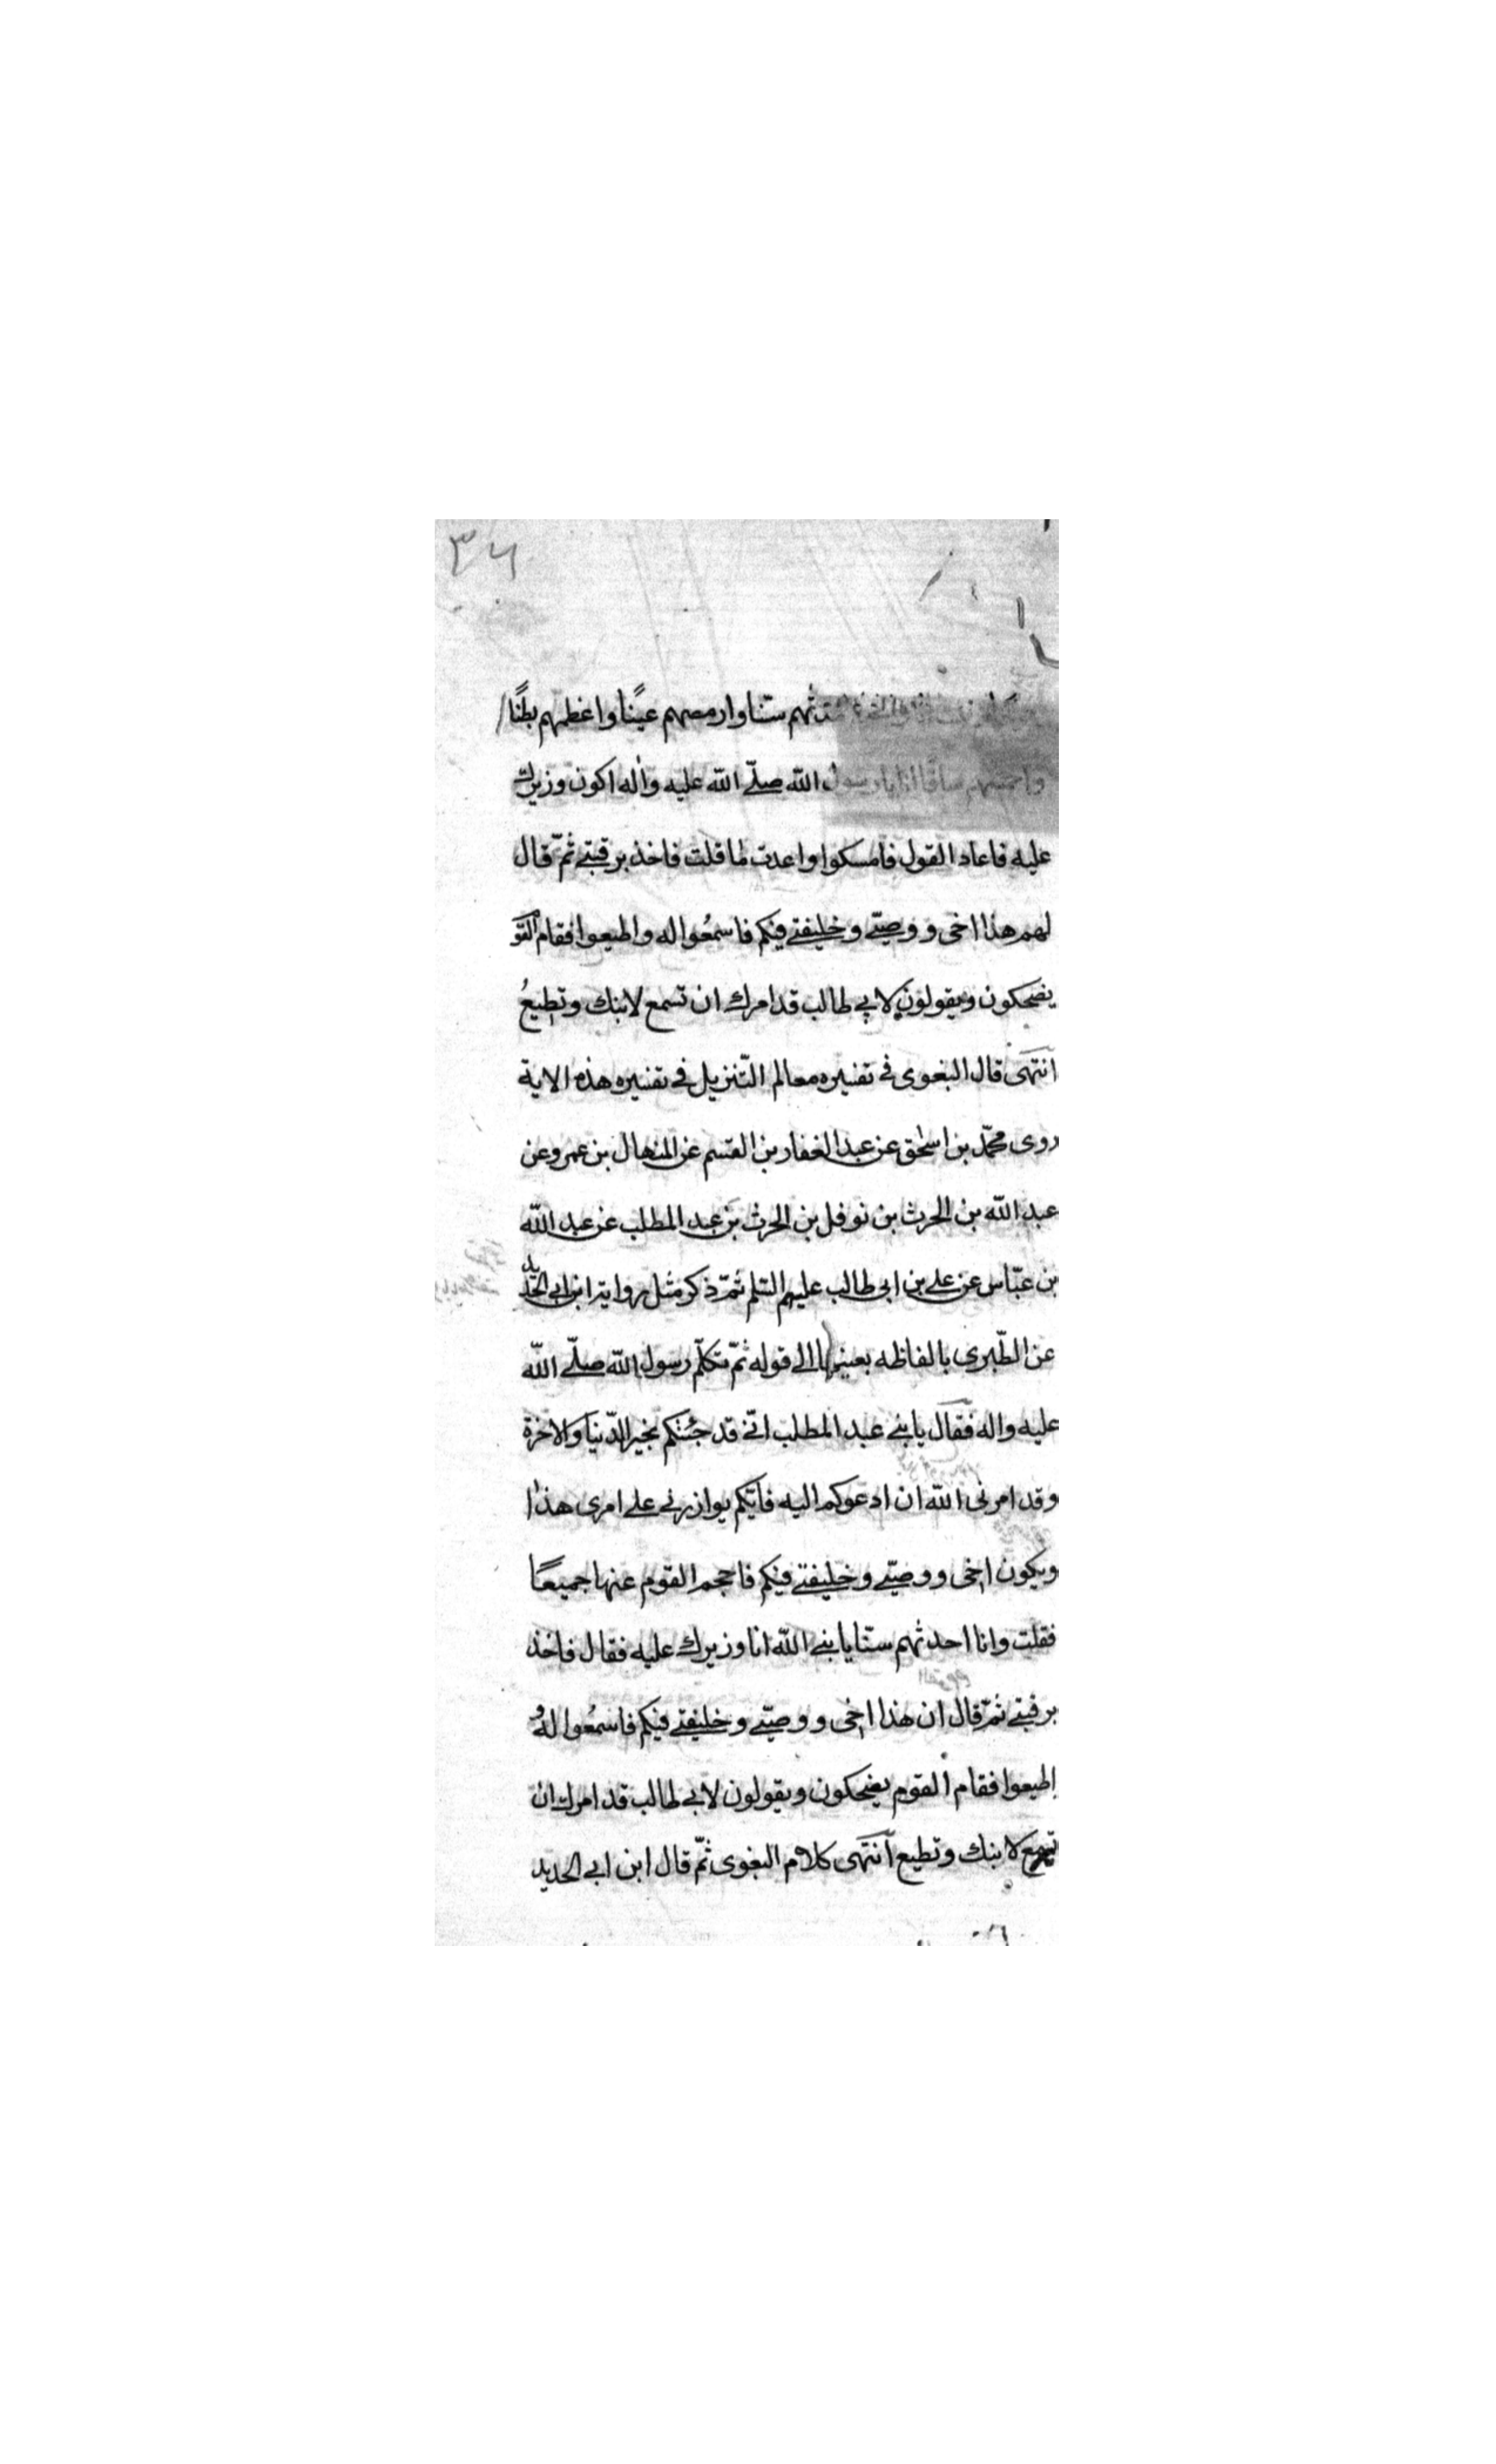 ٣٦
ثهم سنّا وارمصهم عينًا واعظمهم بطنًا
واحمشهم ساقا انا يا رسول الله صلّى الله عليه واله اكون وزيرك
عليه فاعاد القول فامسكوا واعدت ما قلت فاخذ برقبتى ثمّ قال
لهم هذا اخى ووصيّى وخليفتى فيكم فاسمعُوا له واطيعوا فقام القو
يضحكون ويقولون لابى طالب قد امرك ان تسمع لابنك وتطيعُ
انتهى قال البغوى فى تفسيره معالم التّنزيل فى تفسيره هذه الاية
روى محمّد بن اسحٰق عن عبد الغفار بن القسم عن المنهال بن عمرو عن
عبد الله بن الحرث بن نوفل بن الحرث بن عبد المطلب عن عبد الله
بن عبّاس عن على بن ابى طالب عليهم السّلم ثمّ ذكر مثل رواية ابن ابى الحديد
عن الطّبرى بالفاظه بعينها الى قوله ثمّ تكلّم رسول الله صلّى الله
عليه واله فقال يا بنى عبد المطلب انّى قد جئتكم بخير الدّنيا والاخرة
وقد امرنى الله ان ادعوكم اليه فايّكم يوازرنى على امرى هذا
ويكون اخى ووصيّى وخليفتى فيكم فاحجم القوم عنها جميعًا
فقلت وانا احدثهم سنّا يا نبى الله انا وزيرك عليه فقال فاخذ
برقبتى ثمّ قال ان هذا اخى ووصيّى وخليفتى فيكم فاسمعُوا له و
اطيعوا فقام القوم يضحكون ويقولون لابى طالب قد امرك ان
تسمع لابنك وتطيع انتهى كلام البغوى ثمّ قال ابن ابى الحديد